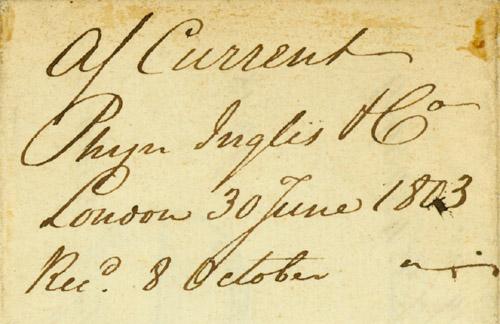 A/ Current
Phyn Inglis & Co
London 30 June 1803
Rec.d 8 October